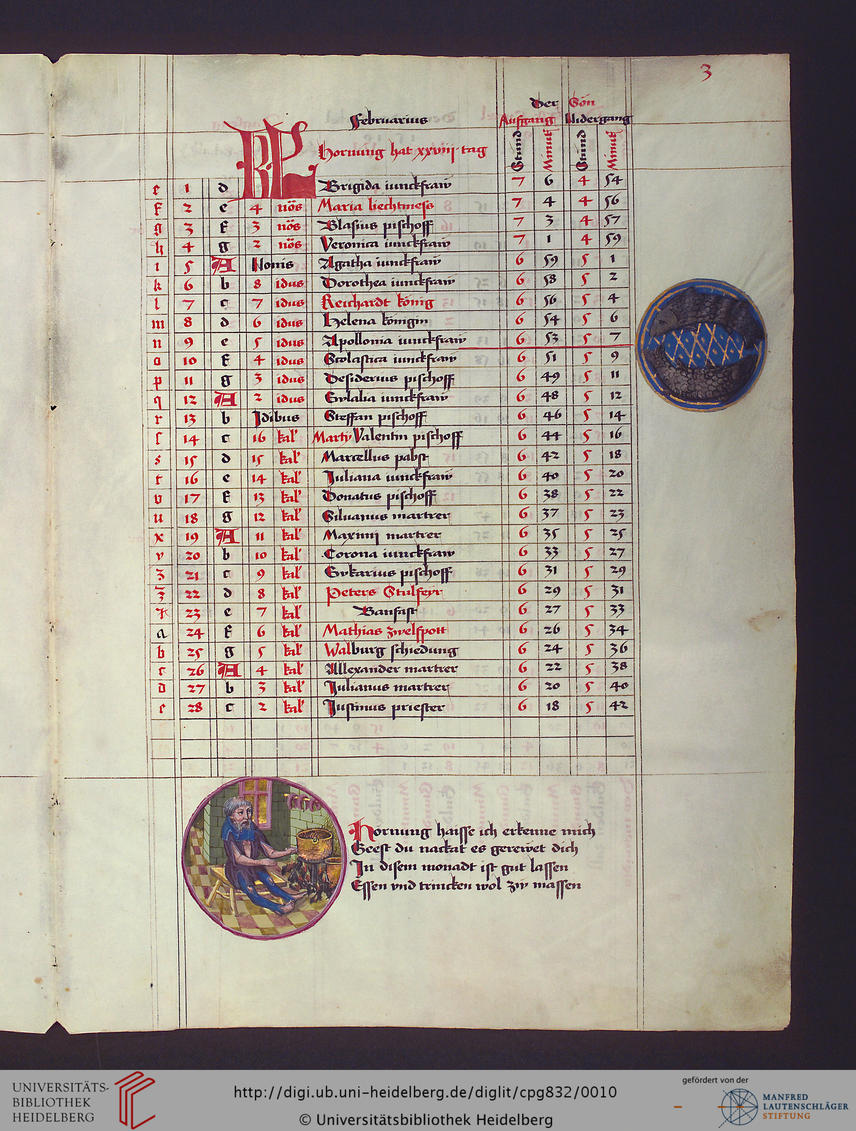 3
Der Son
Februarius Aufgang Nidergang
KL Hornung hat xxviij tag Stund Minut Stund Minut
e 1 d Brigida iunckfraw 7 6 4 54
f 2 e 4 nōs Maria liechtmess 7 4 4 56
g 3 f 3 nōs Blasius pischoff 7 3 4 57
h 4 g 2 nōs Veronica iunckfraw 7 1 4 59
i 5 A Nonis Agatha iunckfraw 6 59 5 1
k 6 b 8 idus Dorothea iunckfraw 6 58 5 2
l 7 c 7 idus Reichardt könig 6 56 5 4
m 8 d 6 idus Helena königin 6 54 5 6
n 9 e 5 idus Apollonia iunckfraw 6 53 5 7
o 10 f 4 idus Scolastica iunckfraw 6 51 5 9
p 11 g 3 idus Desiderius pischoff 6 49 5 11
q 12 A 2 idus Eulalia iunckfraw 6 48 5 12
r 13 b Idibus Steffan pischoff 6 46 5 14
ſ 14 c 16 kal' Marti Valentin pischoff 6 44 5 16
s 15 d 15 kal' Marcellus pabst 6 42 5 18
t 16 e 14 kal' Juliana iunckfraw 6 40 5 20
v 17 f 13 kal' Donatus pischoff 6 38 5 22
u 18 g 12 kal' Siluanus martrer 6 37 5 23
x 19 A 11 kal' Maximj martrer 6 35 5 25
y 20 b 10 kal' Corona iunckfraw 6 33 5 27
z 21 c 9 kal' Eukarius pischoff 6 31 5 29
ʒ 22 d 8 kal' Peters Stulfeyr 6 29 5 31
23 e 7 kal' Banfast 6 27 5 33
a 24 f 6 kal' Mathias zwelfpott 6 26 5 34
b 25 g 5 kal' Walburg schiedung 6 24 5 36
c 26 A 4 kal' Allexander martrer 6 22 5 38
d 27 b 3 kal' Julianus martrer 6 20 5 40
e 28 c 2 kal' Justinus priester 6 18 5 42
Hornung haisse ich erkenne mich
Geest du nackat es gerewet dich
In disem monadt ist gut lassen
Essen vnd trincken wol zw massen
UNIVERSITÄTS-
BIBLIOTHEK
HEIDELBERG
http://digi.ub.uni-heidelberg.de/diglit/cpg832/0010
© Universitätsbibliothek Heidelberg
gefördert von der
MANFRED
LAUTENSCHLÄGER
STIFTUNG